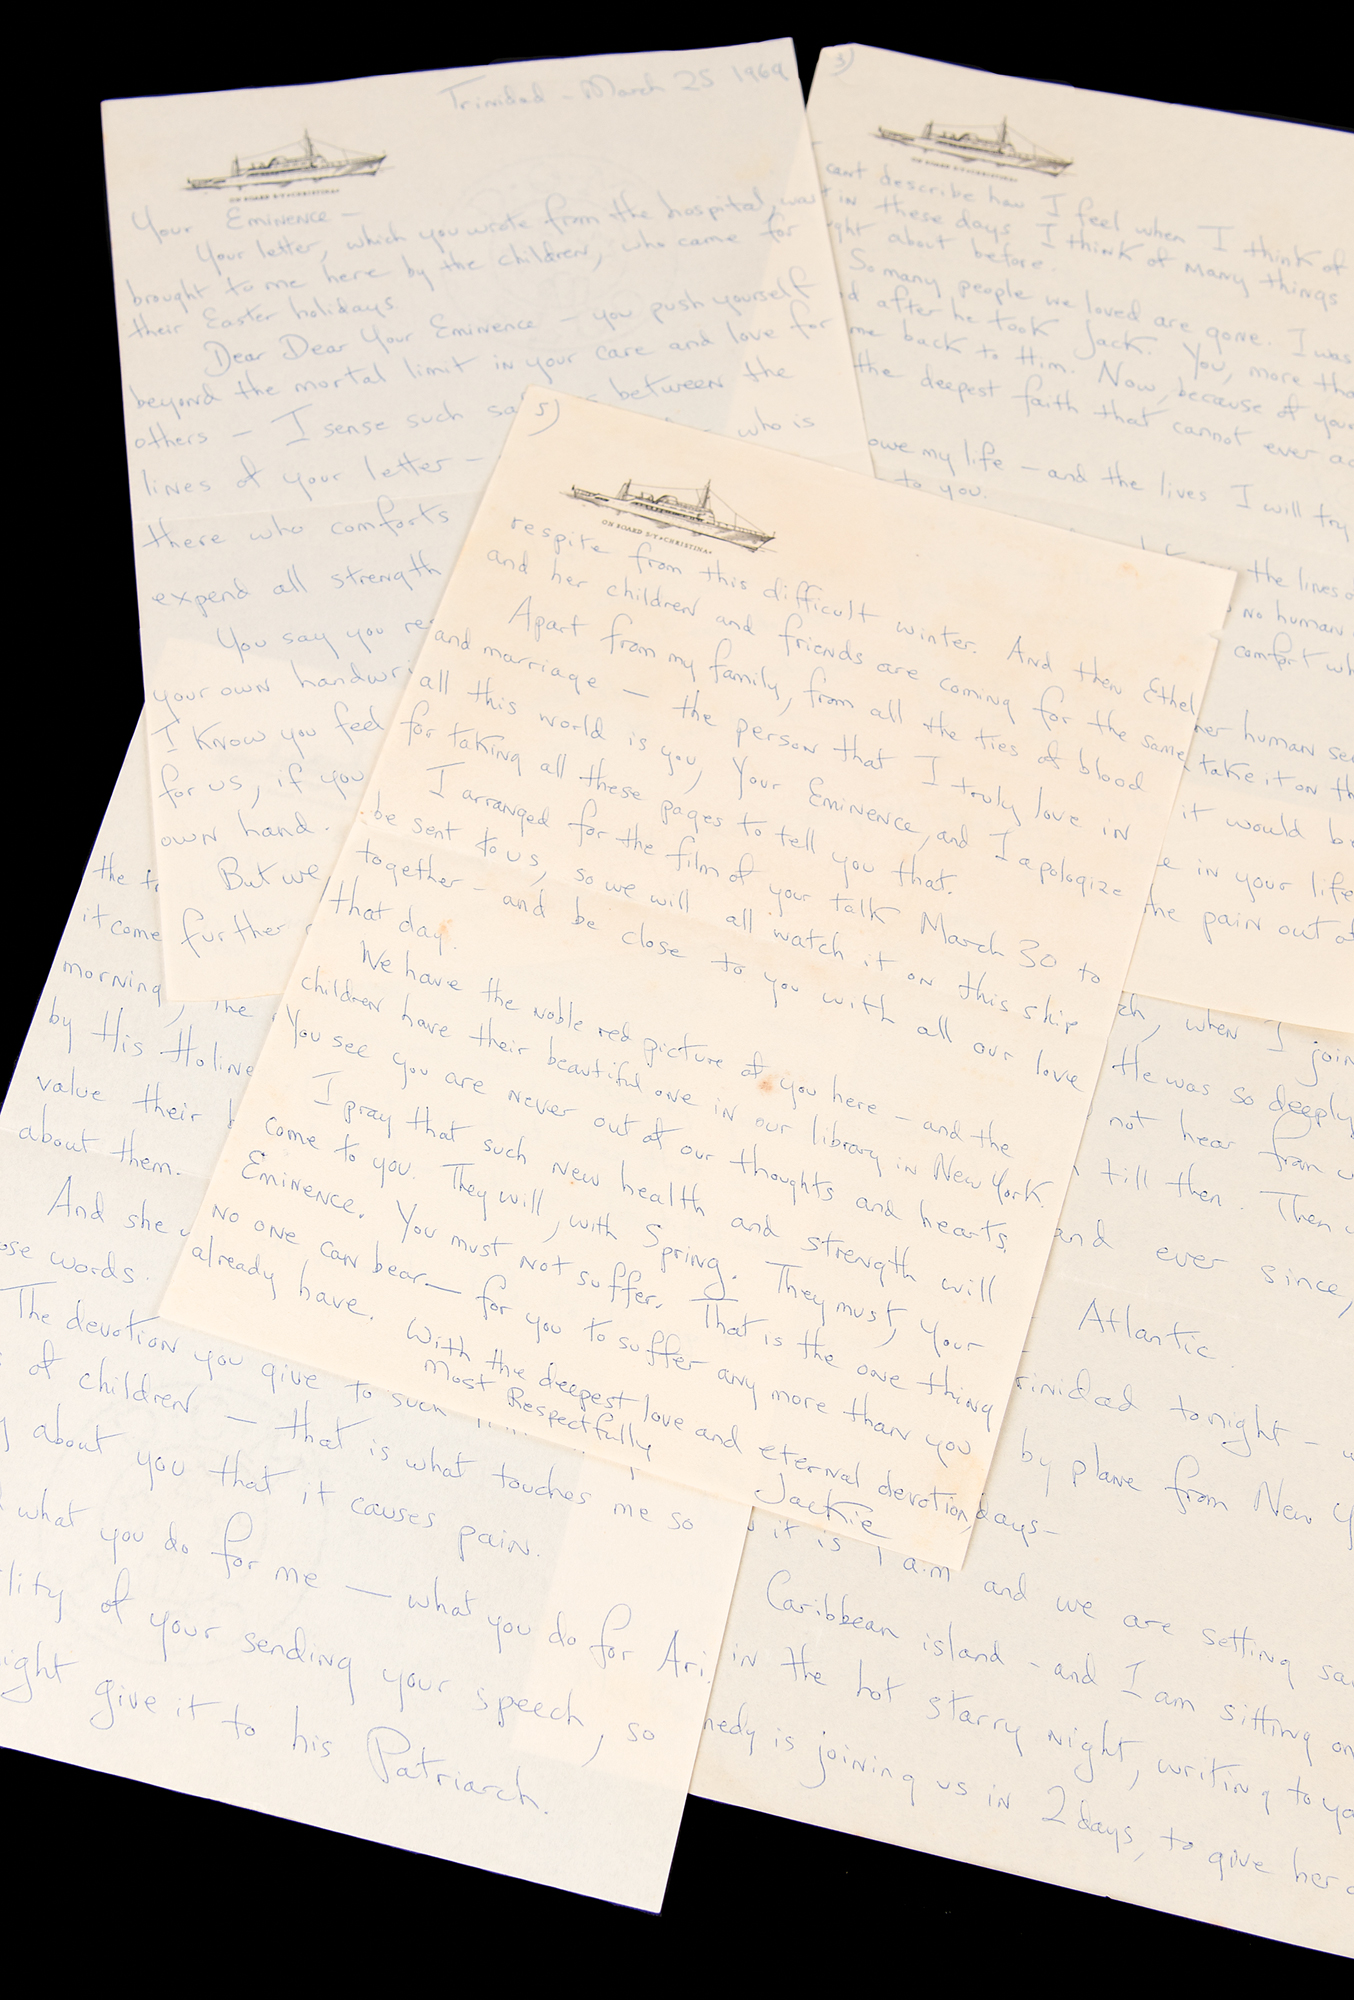 Trinidad – March 25 1969
ON BOARD S/Y "CHRISTINA"
Your Eminence –
Your letter, which you wrote from the hospital, was
brought to me here by the children, who came for
their Easter holidays
Dear Dear Your Eminence – you push yourself
beyond the mortal limit in your care and love for
others – I sense such between the
lines of your letter – who is
there who comforts
expend all strength
You say you
your own
I know you feel
for us, if you
own hand.
But we
further
3)
ON BOARD S/Y "CHRISTINA"
cant describe how I feel when I think of
in these days I think of many things
about before.
So many people we loved are gone. I was
after he took Jack. You, more
me back to Him. Now, because of
the deepest faith that cannot ever
owe my life – and the lives I will try
to you.
the lines
no human
comfort
human
take it on
it would
in your life
the pain out of
5)
ON BOARD S/Y "CHRISTINA"
respite from this difficult winter. And then Ethel
and her children and friends are coming for the same
Apart from my family, from all the ties of blood
and marriage – the person that I truly love in
all this world is you, Your Eminence, and I apologize
for taking all these pages to tell you that.
I arranged for the film of your talk March 30 to
be sent to us, so we will all watch it on this ship
together – and be close to you with all our love
that day.
We have the noble red picture of you here – and the
children have their beautiful one in our library in New York.
You see you are never out of our thoughts and hearts.
I pray that such new health and strength will
come to you. They will, with Spring. They must, Your
Eminence. You must not suffer. That is the one thing
no one can bear – for you to suffer any more than you
already have.
With the deepest love and eternal devotion,
Most Respectfully
Jackie
the
it come
morning, the
by His
value their
about them.
And she
words.
The devotion you give to such
of children – that is what touches me so
about you that it causes pain.
what you do for me – what you do for Ari.
of your sending your speech, so
give it to his Patriarch.
when I
He was so deeply
not hear from
till then. Then
and ever since,
Atlantic.
tonight –
by plane from New
days –
it is 1 a.m and we are setting
Caribbean island – and I am sitting
in the hot starry night, writing to
is joining us in 2 days, to give her